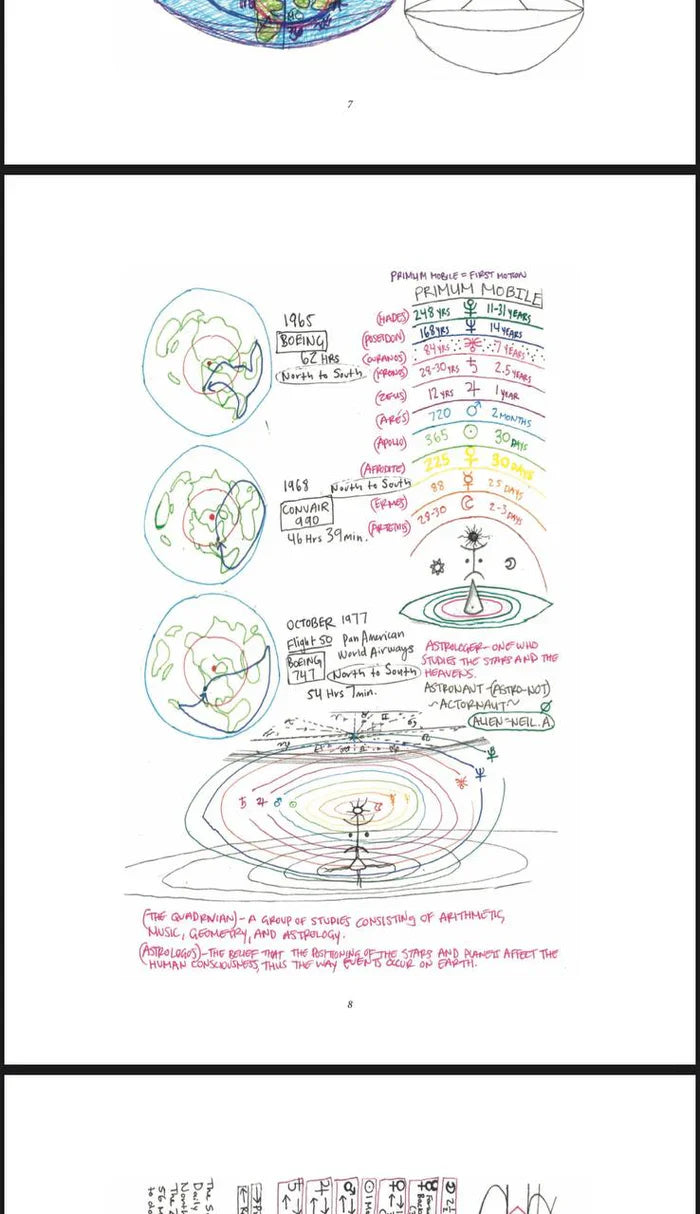 7
1965
BOEING
62 HRS
North to South
1968
North to South
CONVAIR
990
46 Hrs 39min.
OCTOBER 1977
Flight 50 Pan American
World Airways
BOEING
747
North to South
54 Hrs 7min.
PRIMUM MOBILE = FIRST MOTION
PRIMUM MOBILE
(HADES) 248 YRS ♇ 11-31 YEARS
(POSEIDON) 168 YRS ♆ 14 YEARS
(OURANOS) 84 YRS 7 YEARS
(KRONOS) 28-30 YRS ♄ 2.5 YEARS
(ZEUS) 12 YRS ♃ 1 YEAR
(ARES) 720 ♂ 2 MONTHS
(APOLLO) 365 ☉ 30 DAYS
(AFRODITE) 225 ♀ 30 DAYS
(ERMES) 88 ☿ 25 DAYS
(ARTEMIS) 28-30 ☾ 2-3 DAYS
ASTROLOGER - ONE WHO
STUDIES THE STARS AND THE
HEAVENS.
ASTRONAUT - (ASTRO-NOT)
~ACTORNAUT~
ALIEN = NEIL.A
♄ ♃ ♂ ☉
♆
♇
(THE QUADRIVIAN) - A GROUP OF STUDIES CONSISTING OF ARITHMETIC,
MUSIC, GEOMETRY, AND ASTROLOGY.
(ASTROLOGOS) - THE BELIEF THAT THE POSITIONING OF THE STARS AND PLANETS AFFECT THE
HUMAN CONSCIOUSNESS, THUS THE WAY EVENTS OCCUR ON EARTH.
8